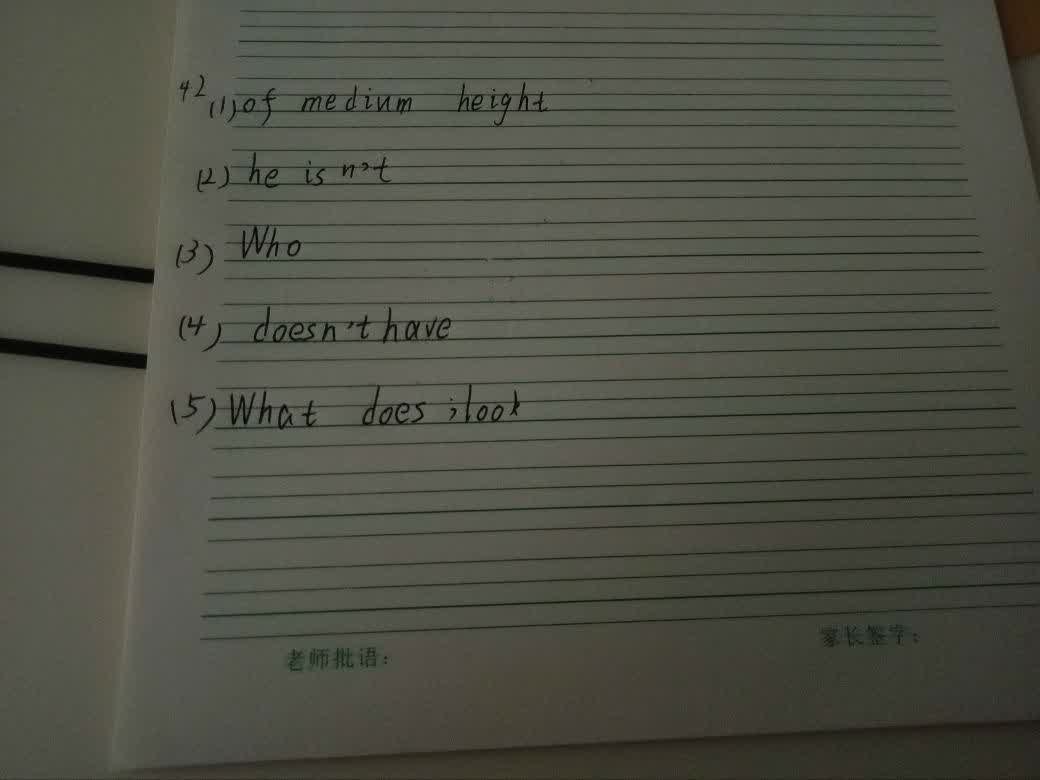 42
(1) of medium height
(2) he isn't
(3) Who
(4) doesn't have
(5) What does ; look
老师批语：
家长签字：